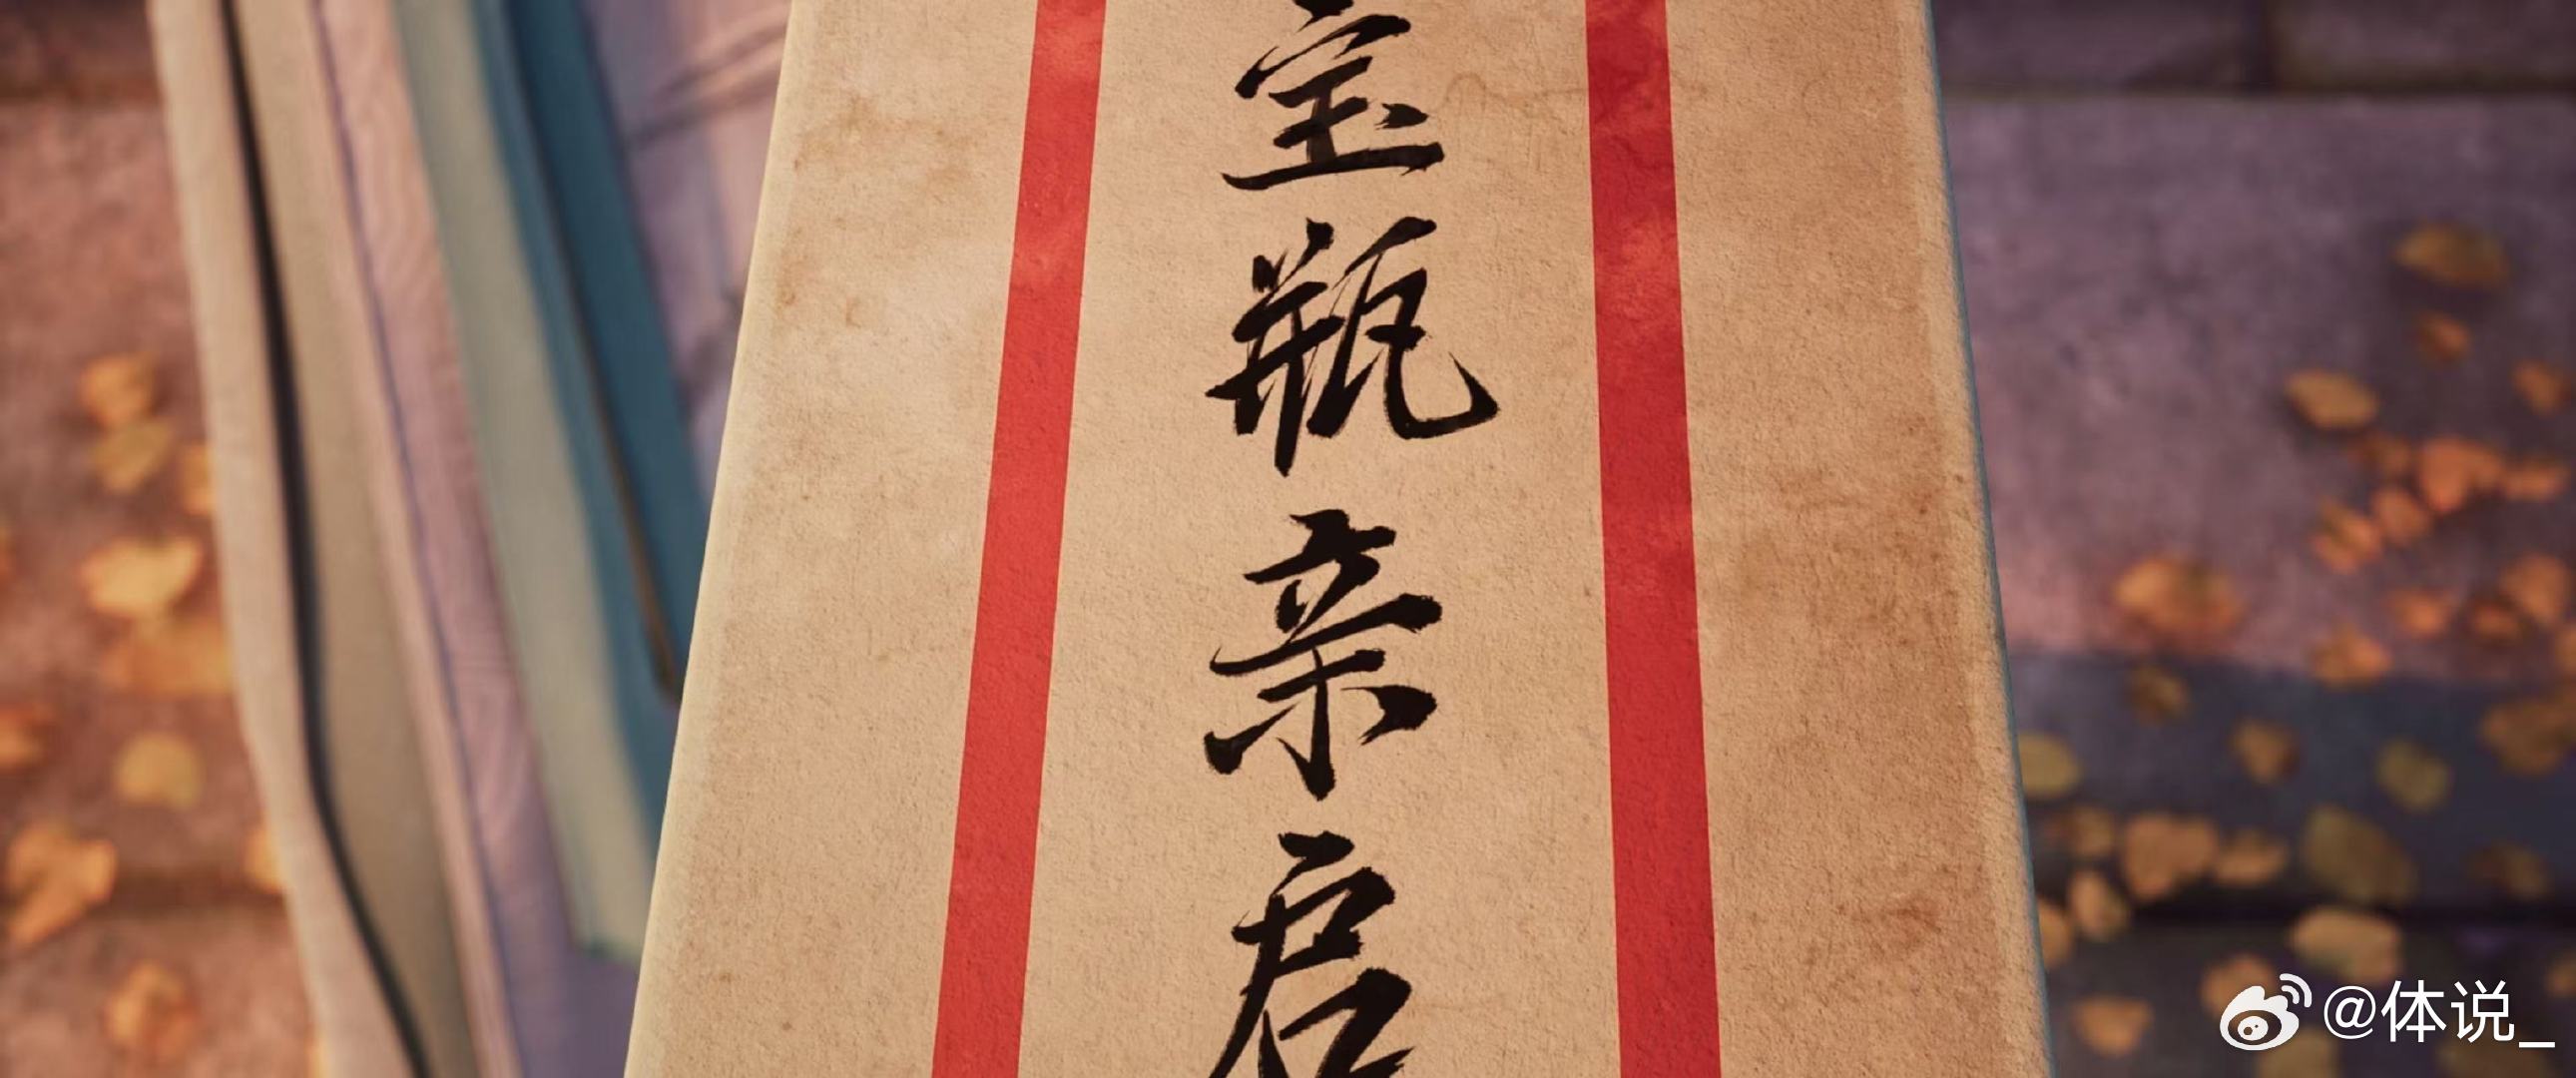 宝瓶亲启
@体说_